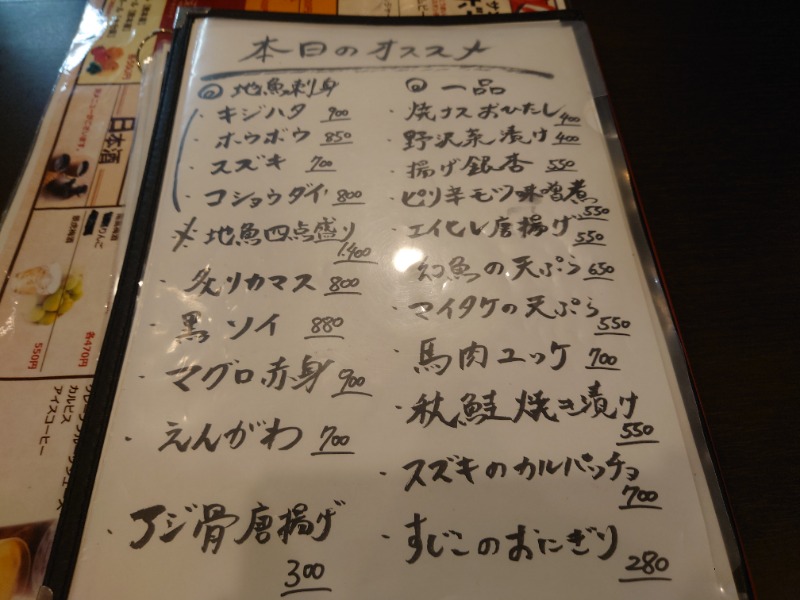 本日のオススメ
◎ 地魚刺身
・キジハタ 900
・ホウボウ 850
・スズキ 700
・コショウダイ 800
※ 地魚四点盛り 1,400
・炙りカマス 800
・黒ソイ 880
・マグロ赤身 900
・えんがわ 700
・アジ骨唐揚げ 300
◎ 一品
・焼ナスおひたし 400
・野沢菜漬け 400
・揚げ銀杏 550
・ピリ辛モツ味噌煮 550
・エイヒレ唐揚げ 550
・幻魚の天ぷら 650
・マイタケの天ぷら 550
・馬肉ユッケ 700
・秋鮭焼き漬け 550
・スズキのカルパッチョ 700
・すじこのおにぎり 280
日本酒
550円
各470円
カルピス
アイスコーヒー